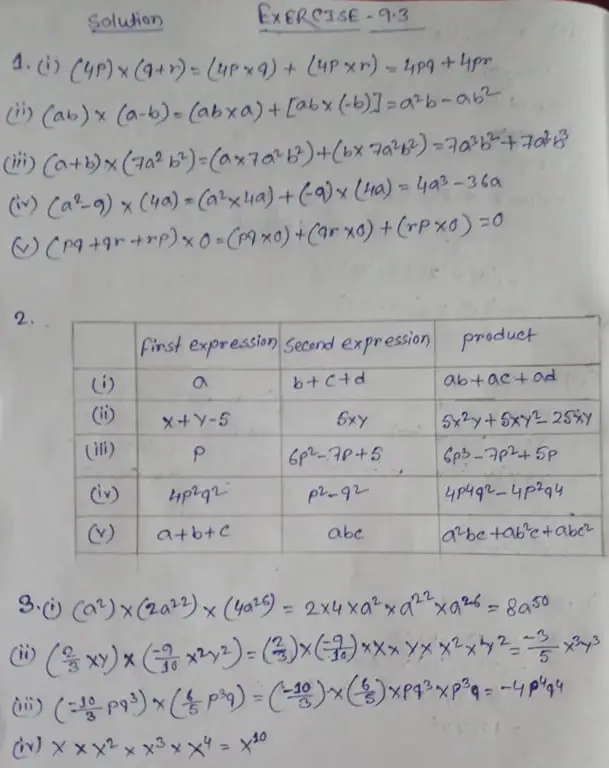 Solution EXERCISE - 9.3
1. (i) (4p) × (q+r) = (4p × q) + (4p × r) = 4pq + 4pr
(ii) (ab) × (a-b) = (ab × a) + [ab × (-b)] = a²b - ab²
(iii) (a+b) × (7a²b²) = (a × 7a²b²) + (b × 7a²b²) = 7a³b² + 7a²b³
(iv) (a²-9) × (4a) = (a² × 4a) + (-9) × (4a) = 4a³ - 36a
(v) (pq + qr + rp) × 0 = (pq × 0) + (qr × 0) + (rp × 0) = 0
2.
First expression Second expression product
(i) a b + c + d ab + ac + ad
(ii) x + y - 5 5xy 5x²y + 5xy² - 25xy
(iii) p 6p² - 7p + 5 6p³ - 7p² + 5p
(iv) 4p²q² p² - q² 4p⁴q² - 4p²q⁴
(v) a + b + c abc a²bc + ab²c + abc²
3. (i) (a²) × (2a²²) × (4a²⁶) = 2 × 4 × a² × a²² × a²⁶ = 8a⁵⁰
(ii) (2/3 xy) × (-9/10 x²y²) = (2/3) × (-9/10) × x × y × x² × y² = -3/5 x³y³
(iii) (-10/3 pq³) × (6/5 p³q) = (-10/3) × (6/5) × pq³ × p³q = -4p⁴q⁴
(iv) x × x² × x³ × x⁴ = x¹⁰